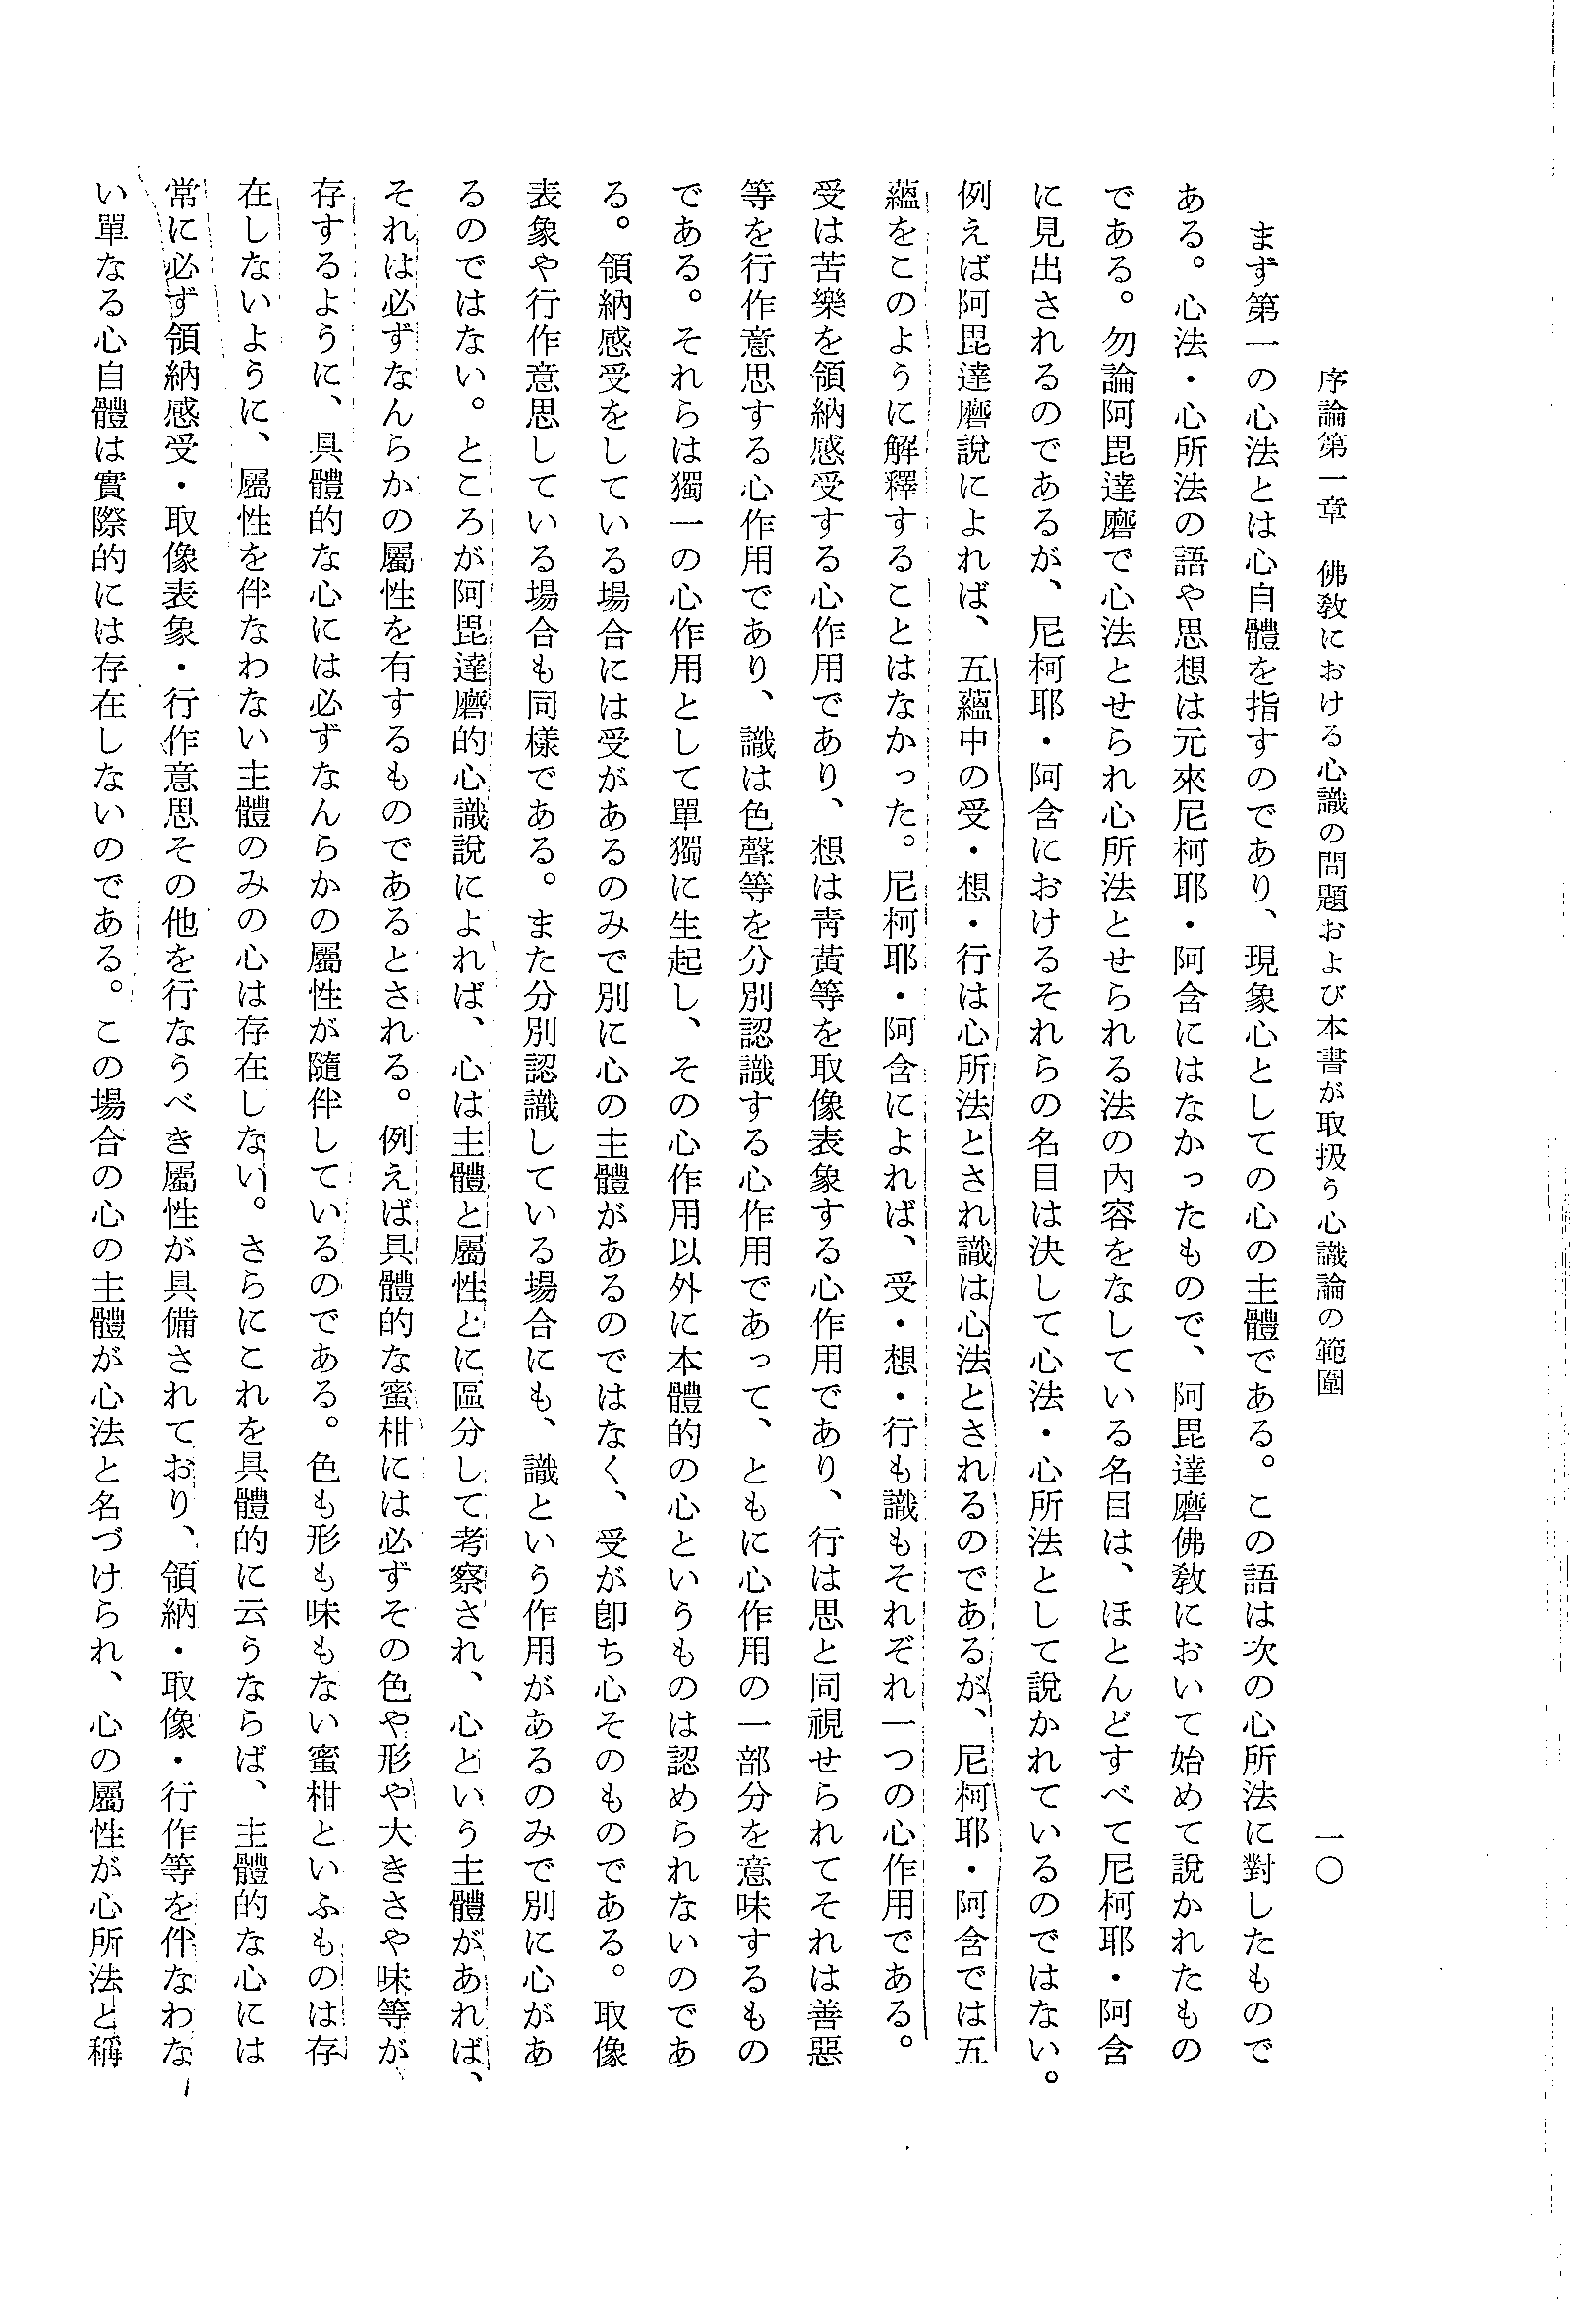 序論第一章　佛敎における心識の問題および本書が取扱う心識論の範圍
一〇
まず第一の心法とは心自體を指すのであり、現象心としての心の主體である。この語は次の心所法に對したもので
ある。心法・心所法の語や思想は元來尼柯耶・阿含にはなかったもので、阿毘達磨佛敎において始めて說かれたもの
である。勿論阿毘達磨で心法とせられ心所法とせられる法の內容をなしている名目は、ほとんどすべて尼柯耶・阿含
に見出されるのであるが、尼柯耶・阿含におけるそれらの名目は決して心法・心所法として說かれているのではない。
例えば阿毘達磨說によれば、五蘊中の受・想・行は心所法とされ識は心法とされるのであるが、尼柯耶・阿含では五
蘊をこのように解釋することはなかった。尼柯耶・阿含によれば、受・想・行も識もそれぞれ一つの心作用である。
受は苦樂を領納感受する心作用であり、想は靑黃等を取像表象する心作用であり、行は思と同視せられてそれは善惡
等を行作意思する心作用であり、識は色聲等を分別認識する心作用であって、ともに心作用の一部分を意味するもの
である。それらは獨一の心作用として單獨に生起し、その心作用以外に本體的の心というものは認められないのであ
る。領納感受をしている場合には受があるのみで別に心の主體があるのではなく、受が卽ち心そのものである。取像
表象や行作意思している場合も同樣である。また分別認識している場合にも、識という作用があるのみで別に心があ
るのではない。ところが阿毘達磨的心識說によれば、心は主體と屬性とに區分して考察され、心という主體があれば、
それは必ずなんらかの屬性を有するものであるとされる。例えば具體的な蜜柑には必ずその色や形や大きさや味等が
存するように、具體的な心には必ずなんらかの屬性が隨伴しているのである。色も形も味もない蜜柑といふものは存
在しないように、屬性を伴なわない主體のみの心は存在しない。さらにこれを具體的に云うならば、主體的な心には
常に必ず領納感受・取像表象・行作意思その他を行なうべき屬性が具備されており、領納・取像・行作等を伴なわな
い單なる心自體は實際的には存在しないのである。この場合の心の主體が心法と名づけられ、心の屬性が心所法と稱